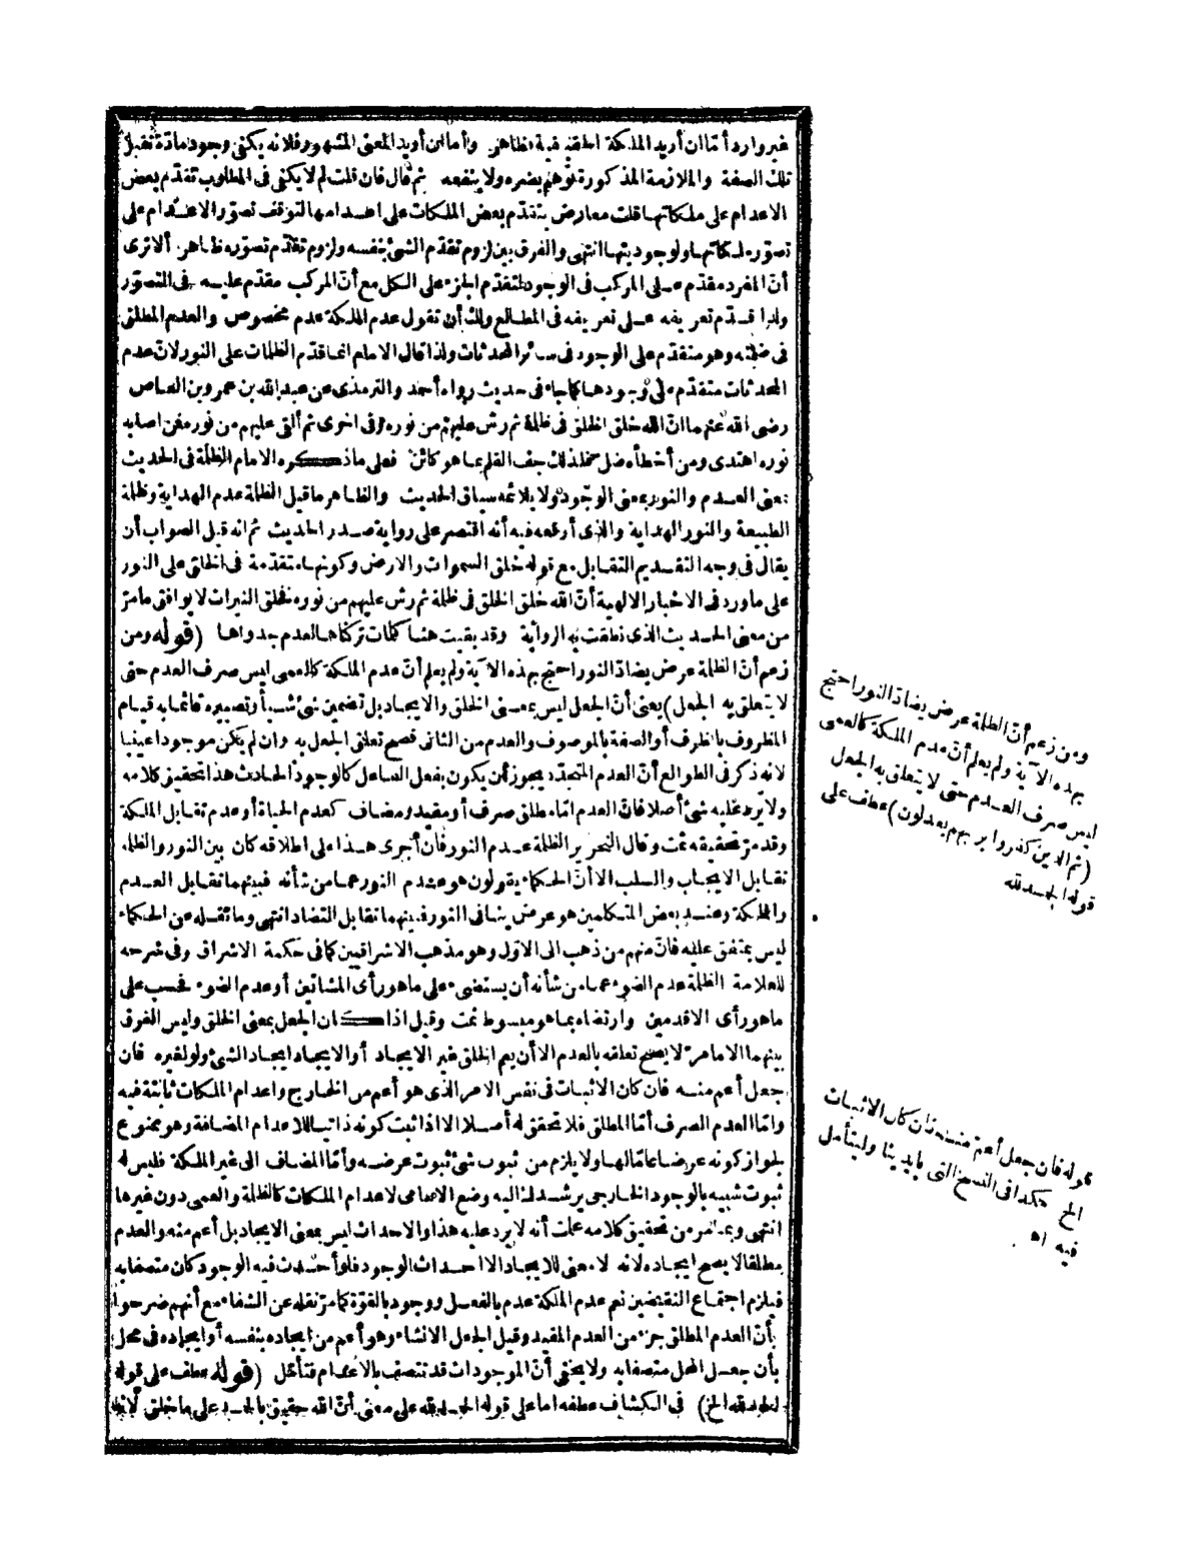 غير وارد أمّا ان أريد الملكة الحقيقية فظاهر وأما ان أريد المعنى المشهور فلانه يكفى وجود مادّة تقبل
تلك الصفة والملازمة المذكورة توهم يضره ولا ينفعه ثم قال فان قلت لم لا يكفى فى المطلوب تقدّم بعض
الاعدام على ملكاتها قلت معارض بتقدّم بعض الملكات على اعدامها لتوقف تصوّر الاعدام على
تصوّر ملكاتها ولوجوديتها انتهى والفرق بين لزوم تقدّم الشئ بنفسه ولزوم تقدّم تصوّره ظاهر ألا ترى
أنّ المفرد مقدّم على المركب فى الوجود لتقدّم الجزء على الكل مع أنّ المركب مقدّم عليه فى التصوّر
ولذا قدّم تعريفه على تعريفه فى المطالع ولك أن تقول عدم الملكة عدم مخصوص والعدم المطلق
فى ضمنه وهو متقدّم على الوجود فى سائر المحدثات ولذا قال الامام انما قدّم الظلمات على النور لانّ عدم
المحدثات متقدّم على وجودها كما جاء فى حديث رواه أحمد والترمذى عن عبد الله بن عمرو بن العاص
رضى الله عنهما انّ الله خلق الخلق فى ظلمة ثم رش عليهم من نوره وفى اخرى ثم ألقى عليهم من نوره فمن اصابه
نوره اهتدى ومن أخطأه ضل فلذلك جف القلم بما هو كائن فعلى ما ذكره الامام الظلمة فى الحديث
بمعنى العدم والنور بمعنى الوجود ولا يلائمه سياق الحديث والظاهر ما قيل الظلمة عدم الهداية وظلمة
الطبيعة والنور الهداية والذى أوقعه فيه أنه اقتصر على رواية صدر الحديث ثم انه قيل الصواب أن
يقال فى وجه التقديم التقابل مع قوله خلق السموات والارض وكونها متقدّمة فى الخلق على النور
على ما ورد فى الاخبار الالهية أنّ الله خلق الخلق فى ظلمة ثم رش عليهم من نوره فخلق النيرات لا يوافق ما مرّ
من معنى الحديث الذى نطقت به الرواية وقد بقيت هنا كلمات تركناها لعدم جدواها (قوله ومن
زعم أنّ الظلمة عرض يضادّ النور احتج بهذه الآية ولم يعلم أنّ عدم الملكة كالعمى ليس صرف العدم حتى
لا يتعلق به الجعل) يعنى أنّ الجعل ليس بمعنى الخلق والايجاد بل تضمين شئ شيأ وتصييره قائما به قيام
المظروف بالظرف أو الصفة بالموصوف والعدم من الثانى فصح تعلق الجعل به وان لم يكن موجودا عينيا
لانه ذكر فى الطوالع أنّ العدم المتجدّد يجوز أن يكون بفعل الفاعل كالوجود الحادث هذا تحقيق كلامه
ولا يرد عليه شئ أصلا فانّ العدم امّا مطلق صرف أو مقيد ومضاف كعدم الحياة أو عدم تقابل الملكة
وقد مرّ تحقيقه ثمت وقال النحرير الظلمة عدم النور فان أجرى هذا على اطلاقه كان بين النور والظلمة
تقابل الايجاب والسلب الا أنّ الحكماء يقولون هو عدم النور عما من شأنه فبينهما تقابل العدم
والملكة وعند بعض المتكلمين هو عرض ينافى النور فبينهما تقابل التضاد انتهى وما نقله عن الحكماء
ليس بمتفق عليه فانّ منهم من ذهب الى الاوّل وهو مذهب الاشراقيين كما فى حكمة الاشراق وفى شرحه
للعلامة الظلمة عدم الضوء عما من شأنه أن يستضىء على ما هو رأى المشائين أو عدم الضوء فحسب على
ما هو رأى الاقدمين وارتضاه بما هو مبسوط ثمت وقيل اذا كان الجعل بمعنى الخلق وليس الفرق
بينهما الا ما مرّ لا يصح تعلقه بالعدم الا أن يعم الخلق غير الايجاد أو الايجاد ايجاد الشئ ولو لغيره فان
جعل أعم منه فان كان الاثبات فى نفس الامر الذى هو أعم من الخارج واعدام الملكات ثابتة فيه
وامّا العدم الصرف أمّا المطلق فلا تحقق له أصلا الا اذا ثبت كونه ذاتيا للاعدام المضافة وهو ممنوع
لجواز كونه عرضا عامّا لها ولا يلزم من ثبوت شئ ثبوت عرضه وأمّا المضاف الى غير الملكة فليس له
ثبوت شبيه بالوجود الخارجى يرشدك اليه وضع الاسامى لاعدام الملكات كالظلمة والعمى دون غيرها
انتهى وبما مرّ من تحقيق كلامه علمت أنه لا يرد عليه هذا والاحداث ليس بمعنى الايجاد بل أعم منه والعدم
مطلقا لا يصح ايجاده لانه لا معنى للايجاد الا احداث الوجود فلو أحدث فيه الوجود كان متصفا به
فيلزم اجتماع النقيضين نعم عدم الملكة عدم بالفعل ووجود بالقوّة كما مرّ نقله عن الشفاء مع أنهم صرحوا
بأنّ العدم المطلق جزء من العدم المقيد وقيل الجعل الانشاء وهو أعم من ايجاده بنفسه أو ايجاده فى محل
بأن جعل المحل متصفا به ولا يخفى أنّ الموجودات قد تتصف بالاعدام فتأمّل (قوله عطف على قوله
الحمد لله الخ) فى الكشاف عطفه اما على قوله الحمد لله على معنى أنّ الله حقيق بالحمد على ما خلق لانه
ومن زعم أنّ الظلمة عرض يضادّ النور احتج
بهذه الآية ولم يعلم أنّ عدم الملكة كالعمى
ليس صرف العدم حتى لا يتعلق به الجعل
(ثم الذين كفروا بربهم يعدلون) عطف على
قوله الحمد لله
قوله فان جعل أعم منه فان كان الاثبات
الخ هكذا فى النسخ التى بايدينا وليتأمل
فيه اه